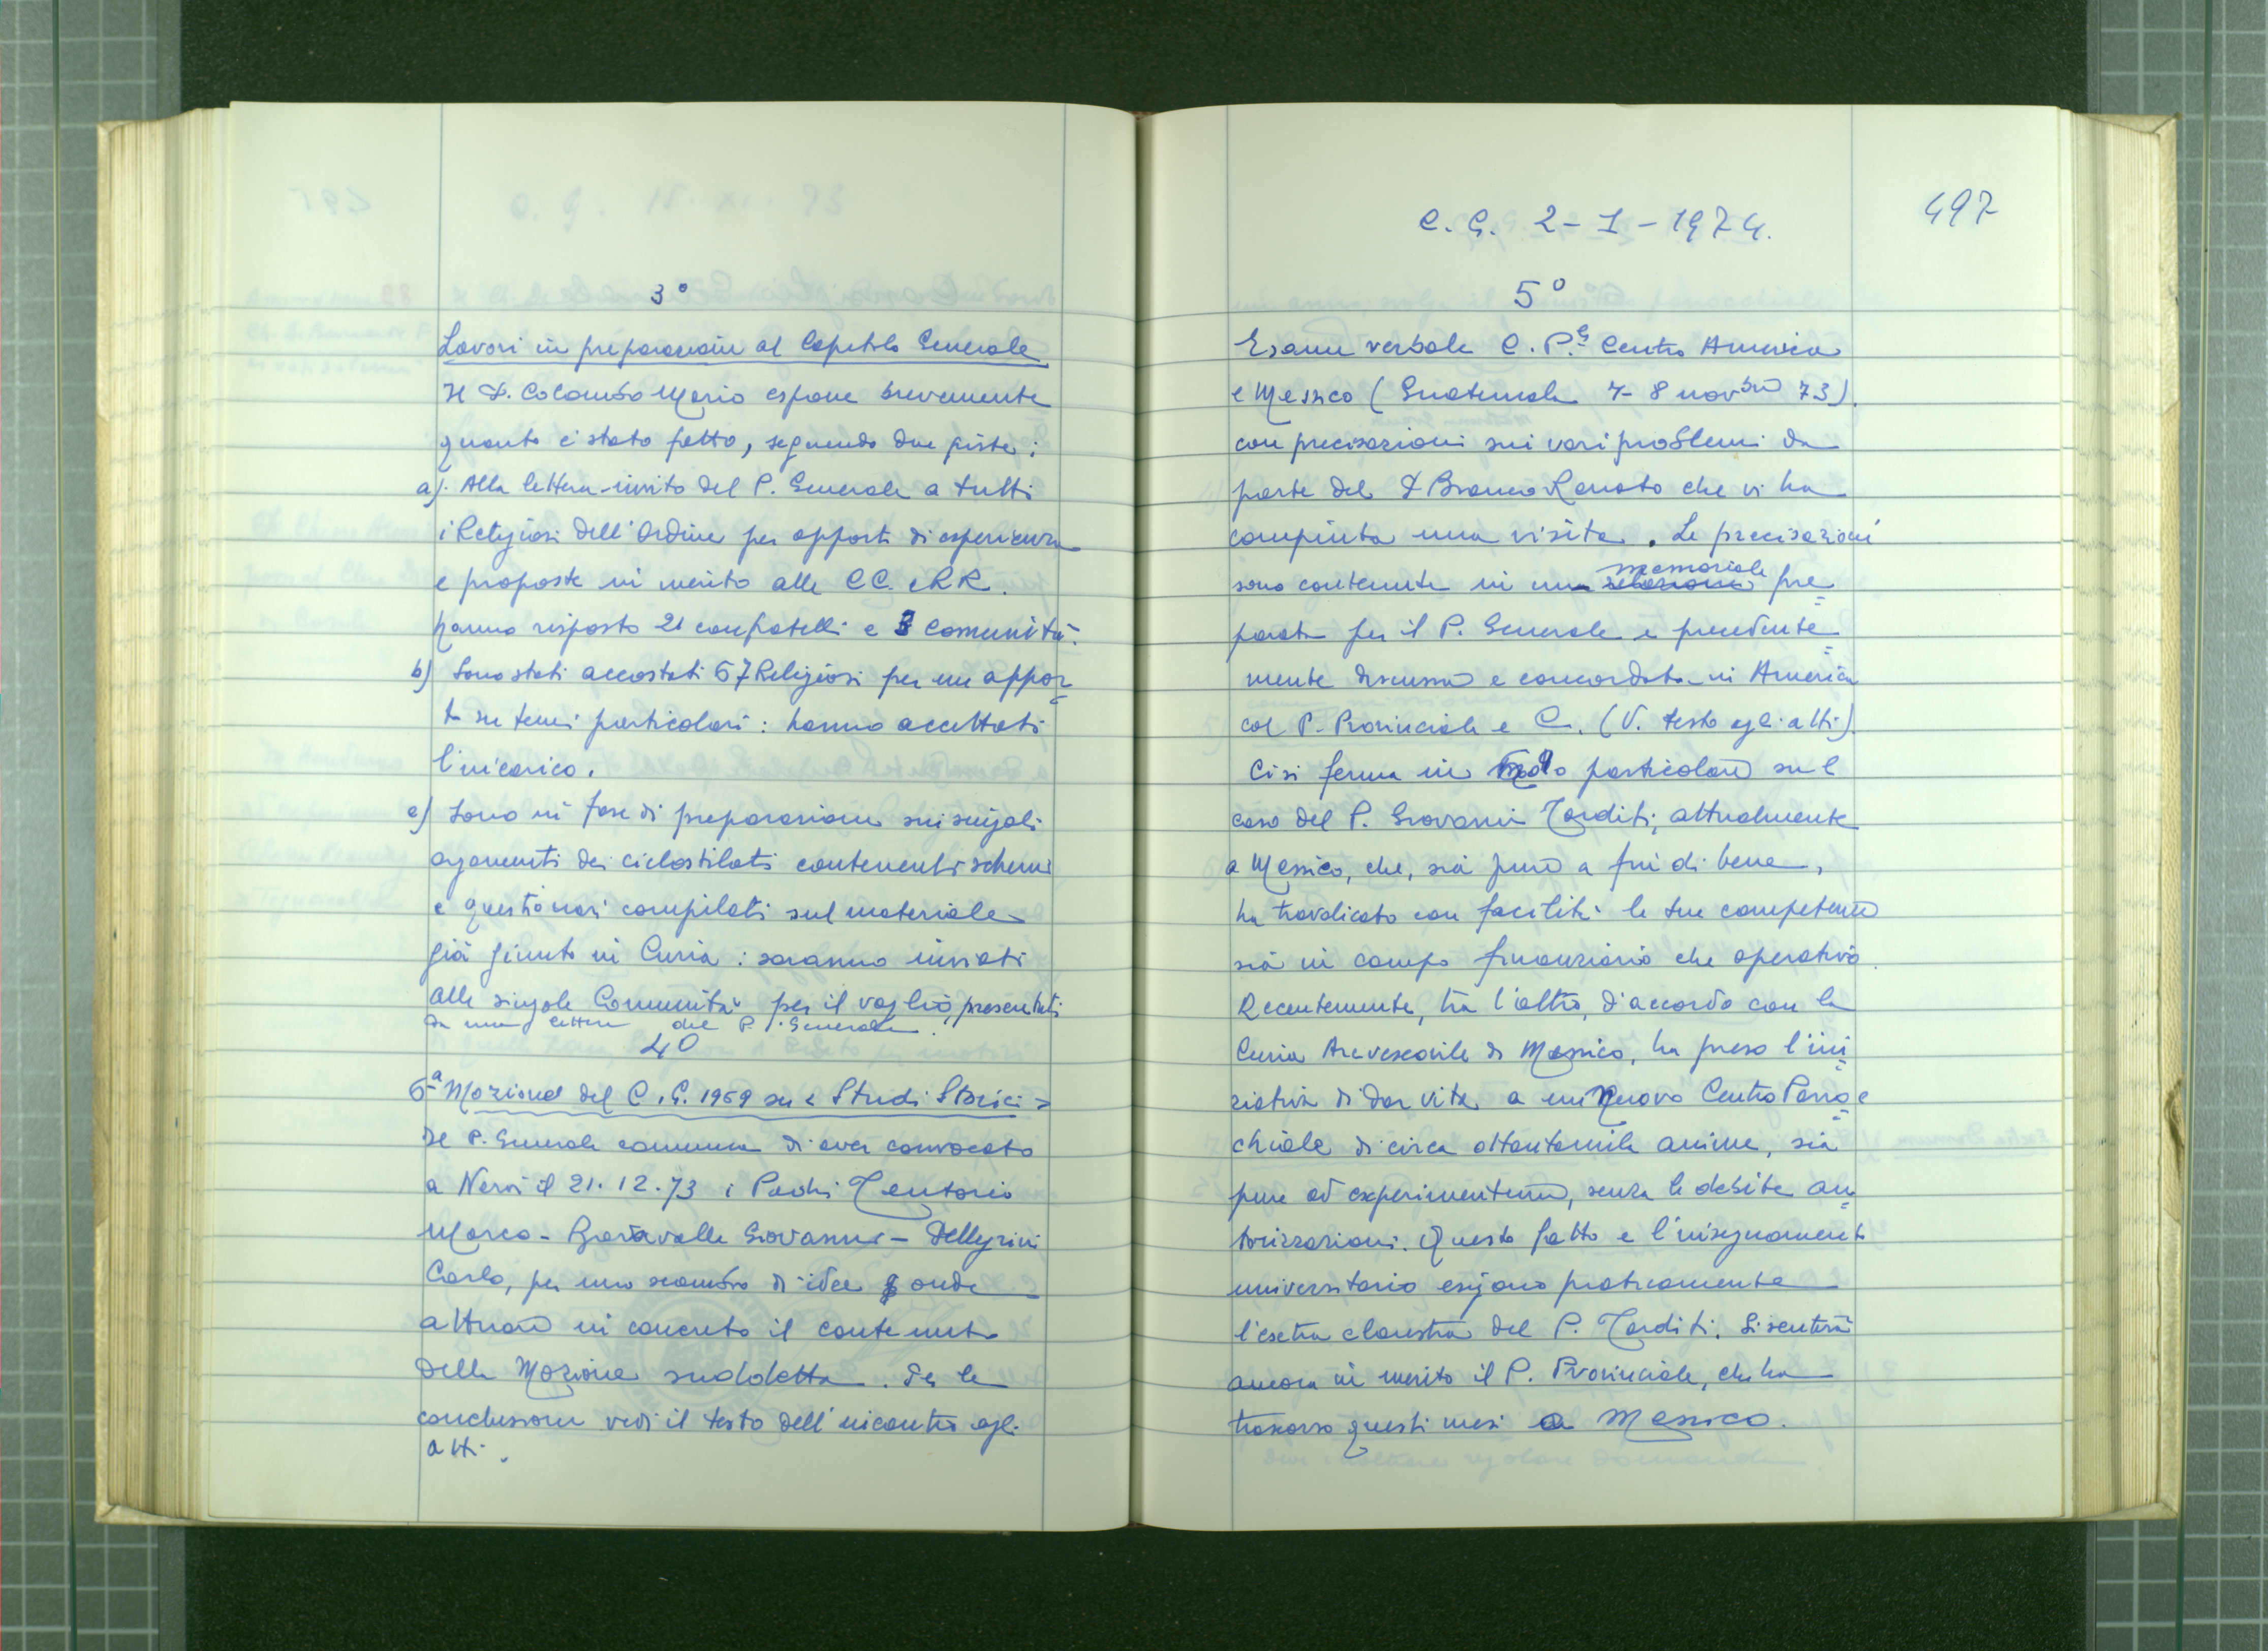 3°
Lavori in preparazione al Capitolo Generale
Il P. Colombo Mario espone brevemente
quanto è stato fatto, seguendo due piste:
a). Alla lettera-invito del P. Generale a tutti
i Religiosi dell'Ordine per apporti di esperienza
e proposte in merito alle CC. e RR.
hanno risposto 21 confratelli e 3 comunità.
b) Sono stati accostati 57 Religiosi per un appor=
to su temi particolari: hanno accettati
l'incarico.
c) Sono in fase di preparazione sui singoli
argomenti dei ciclostilati contenenti schemi
e questionari compilati sul materiale
già giunto in Curia: saranno inviati
alle singole Comunità per il vaglio, presentati
da una lettera del P. Generale.
4°
6ª Mozione del C.G. 1969 su < Studi Storici >
Il P. Generale comunica di aver convocato
a Nervi il 21.12.73 i Padri Tentorio
Marco - Baravalle Giovanni - Pellegrini
Carlo, per uno scambio di idee onde
attuare in concreto il contenuto
della Mozione suddetta. Per le
conclusioni vedi il testo dell'incontro agli
atti.
C.G. 2-1-1974.
497
5°
Esame verbale C.P. Centro America
e Messico (Guatemala 7-8 novbre 73).
con precisazioni sui vari problemi da
parte del P. Bianco Renato che vi ha
compiuta una visita. Le precisazioni
memoriale
sono contenute in una relazione pre=
parata per il P. Generale e precedente=
mente discussa e concordata in America
col P. Provinciale e C. (V. testo agli atti).
Ci si ferma in modo particolare sul
caso del P. Giovanni Tarditi, attualmente
a Messico, che, sia pure a fin di bene,
ha travalicato con facilità le sue competenze
sia in campo finanziario che operativo.
Recentemente, tra l'altro, d'accordo con la
Curia Arcivescovile di Messico, ha preso l'ini=
ziativa di dar vita a un nuovo Centro Parroc=
chiale di circa ottantamila anime, sia
pure ad experimentum, senza le debite au=
torizzazioni. Questo fatto e l'insegnamento
universitario esigono praticamente
l'esctra claustra del P. Tarditi. Si sentirà
ancora in merito il P. Provinciale, che ha
trascorso questi mesi a Messico.